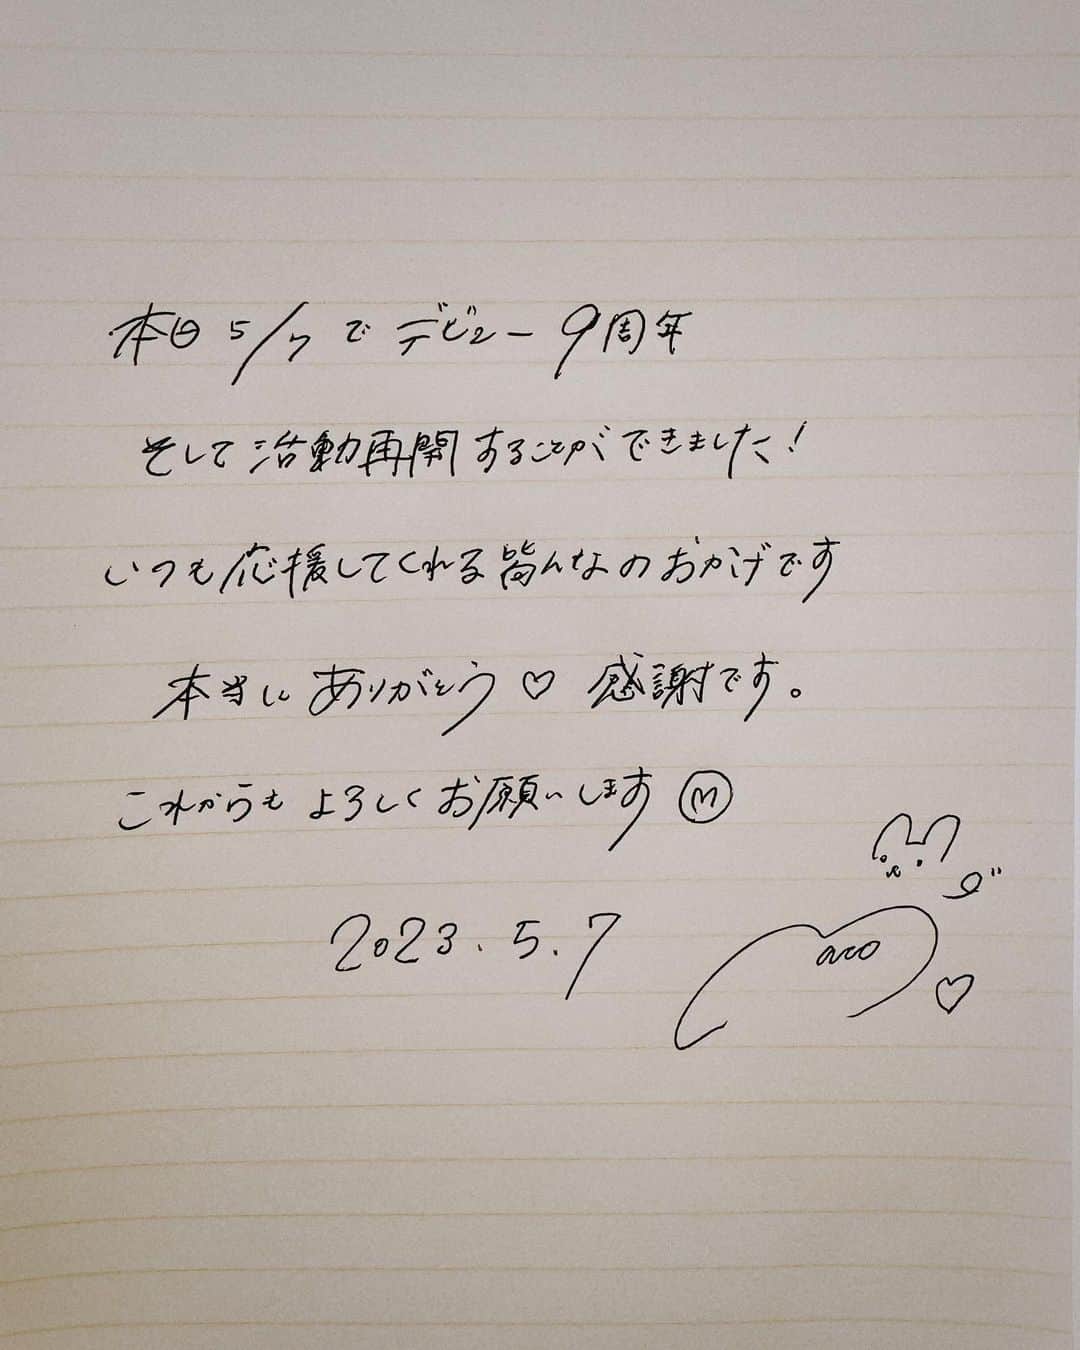 本日5/7でデビュー9周年
そして活動再開することができました!
いつも応援してくれる皆んなのおかげです
本当にありがとう♡ 感謝です。
これからもよろしくお願いします Ⓜ
2023.5.7
aco